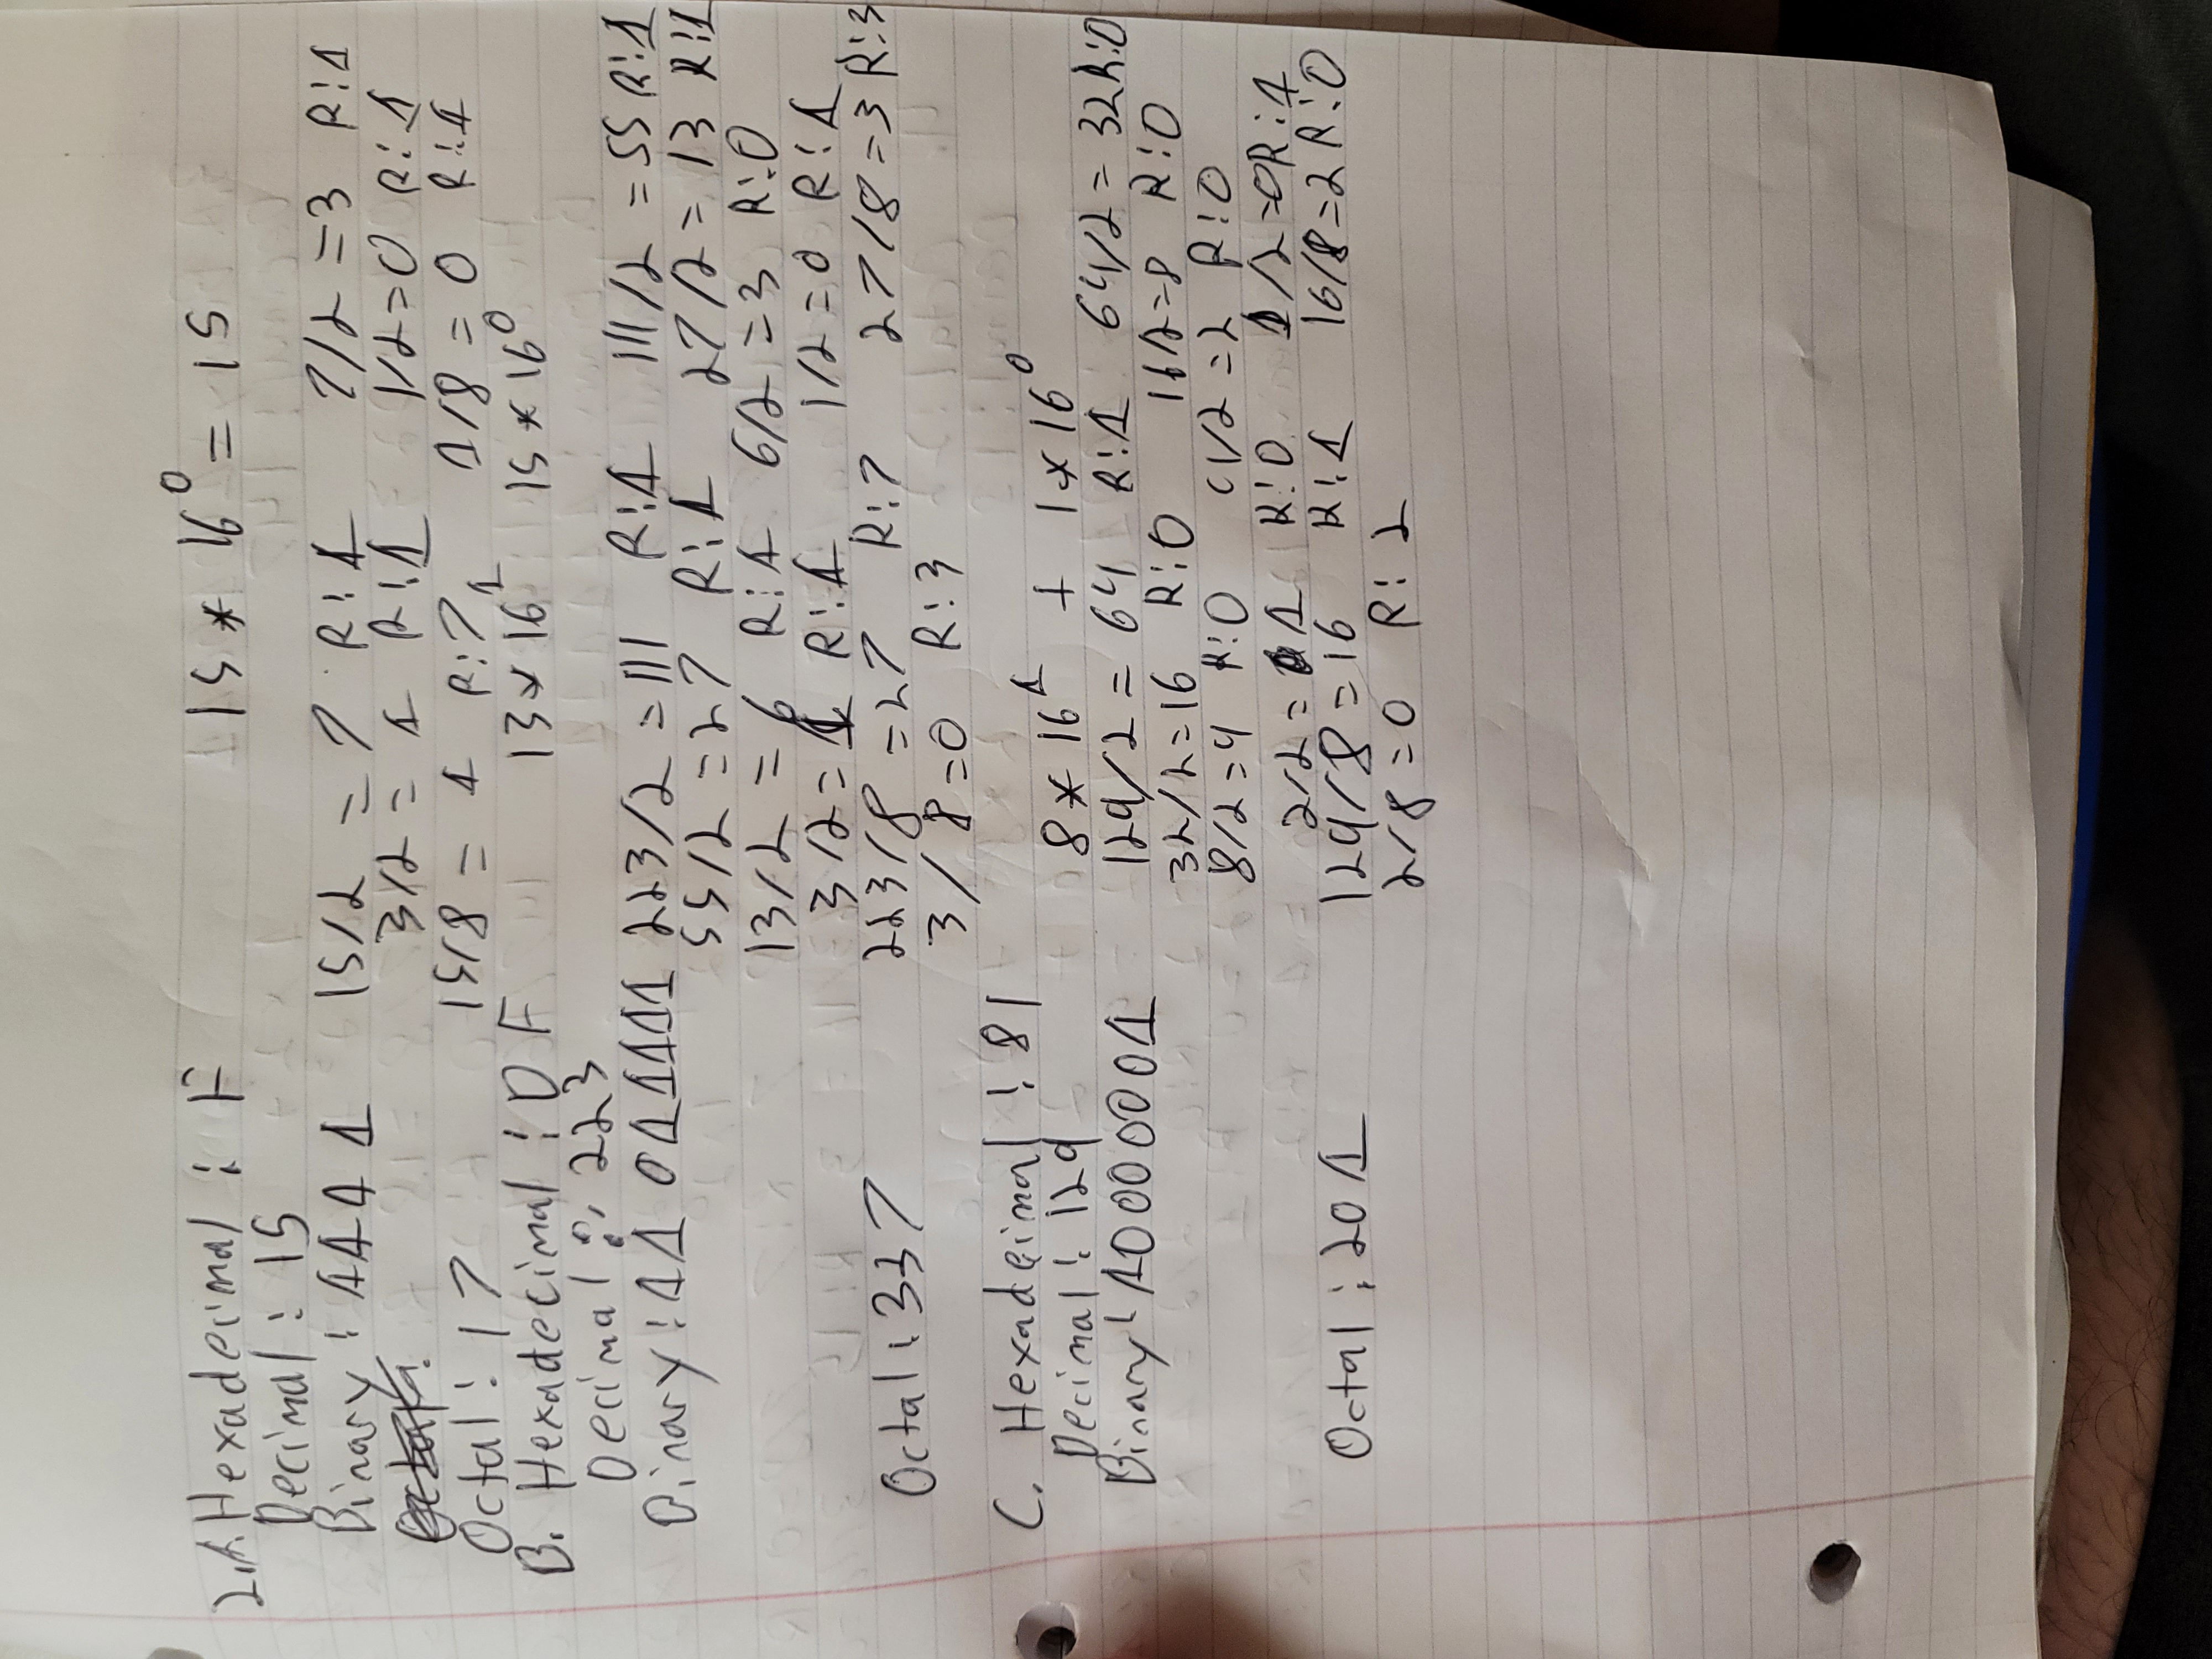 2.A. Hexadecimal : F 15 * 16^0 = 15
Decimal : 15
Binary : 1111 15/2 = 7 R:1 7/2 = 3 R:1
Octal : 3/2 = 1 R:1 1/2 = 0 R:1
Octal : 17 15/8 = 1 R:7 1/8 = 0 R:1
B. Hexadecimal : DF 13 * 16^1 15 * 16^0
Decimal : 223
Binary : 11011111 223/2 = 111 R:1 111/2 = 55 R:1
55/2 = 27 R:1 27/2 = 13 R:1
13/2 = 6 R:1 6/2 = 3 R:0
3/2 = 1 R:1 1/2 = 0 R:1
Octal : 337 223/8 = 27 R:7 27/8 = 3 R:3
3/8 = 0 R:3
C. Hexadeimal : 81
Decimal : 129 8 * 16^1 + 1 * 16^0
Binary : 10000001 129/2 = 64 R:1 64/2 = 32 R:0
32/2 = 16 R:0 16/2 = 8 R:0
8/2 = 4 R:0 4/2 = 2 R:0
2/2 = 1 R:0 1/2 = 0 R:1
Octal : 201 129/8 = 16 R:1 16/8 = 2 R:0
2/8 = 0 R:2